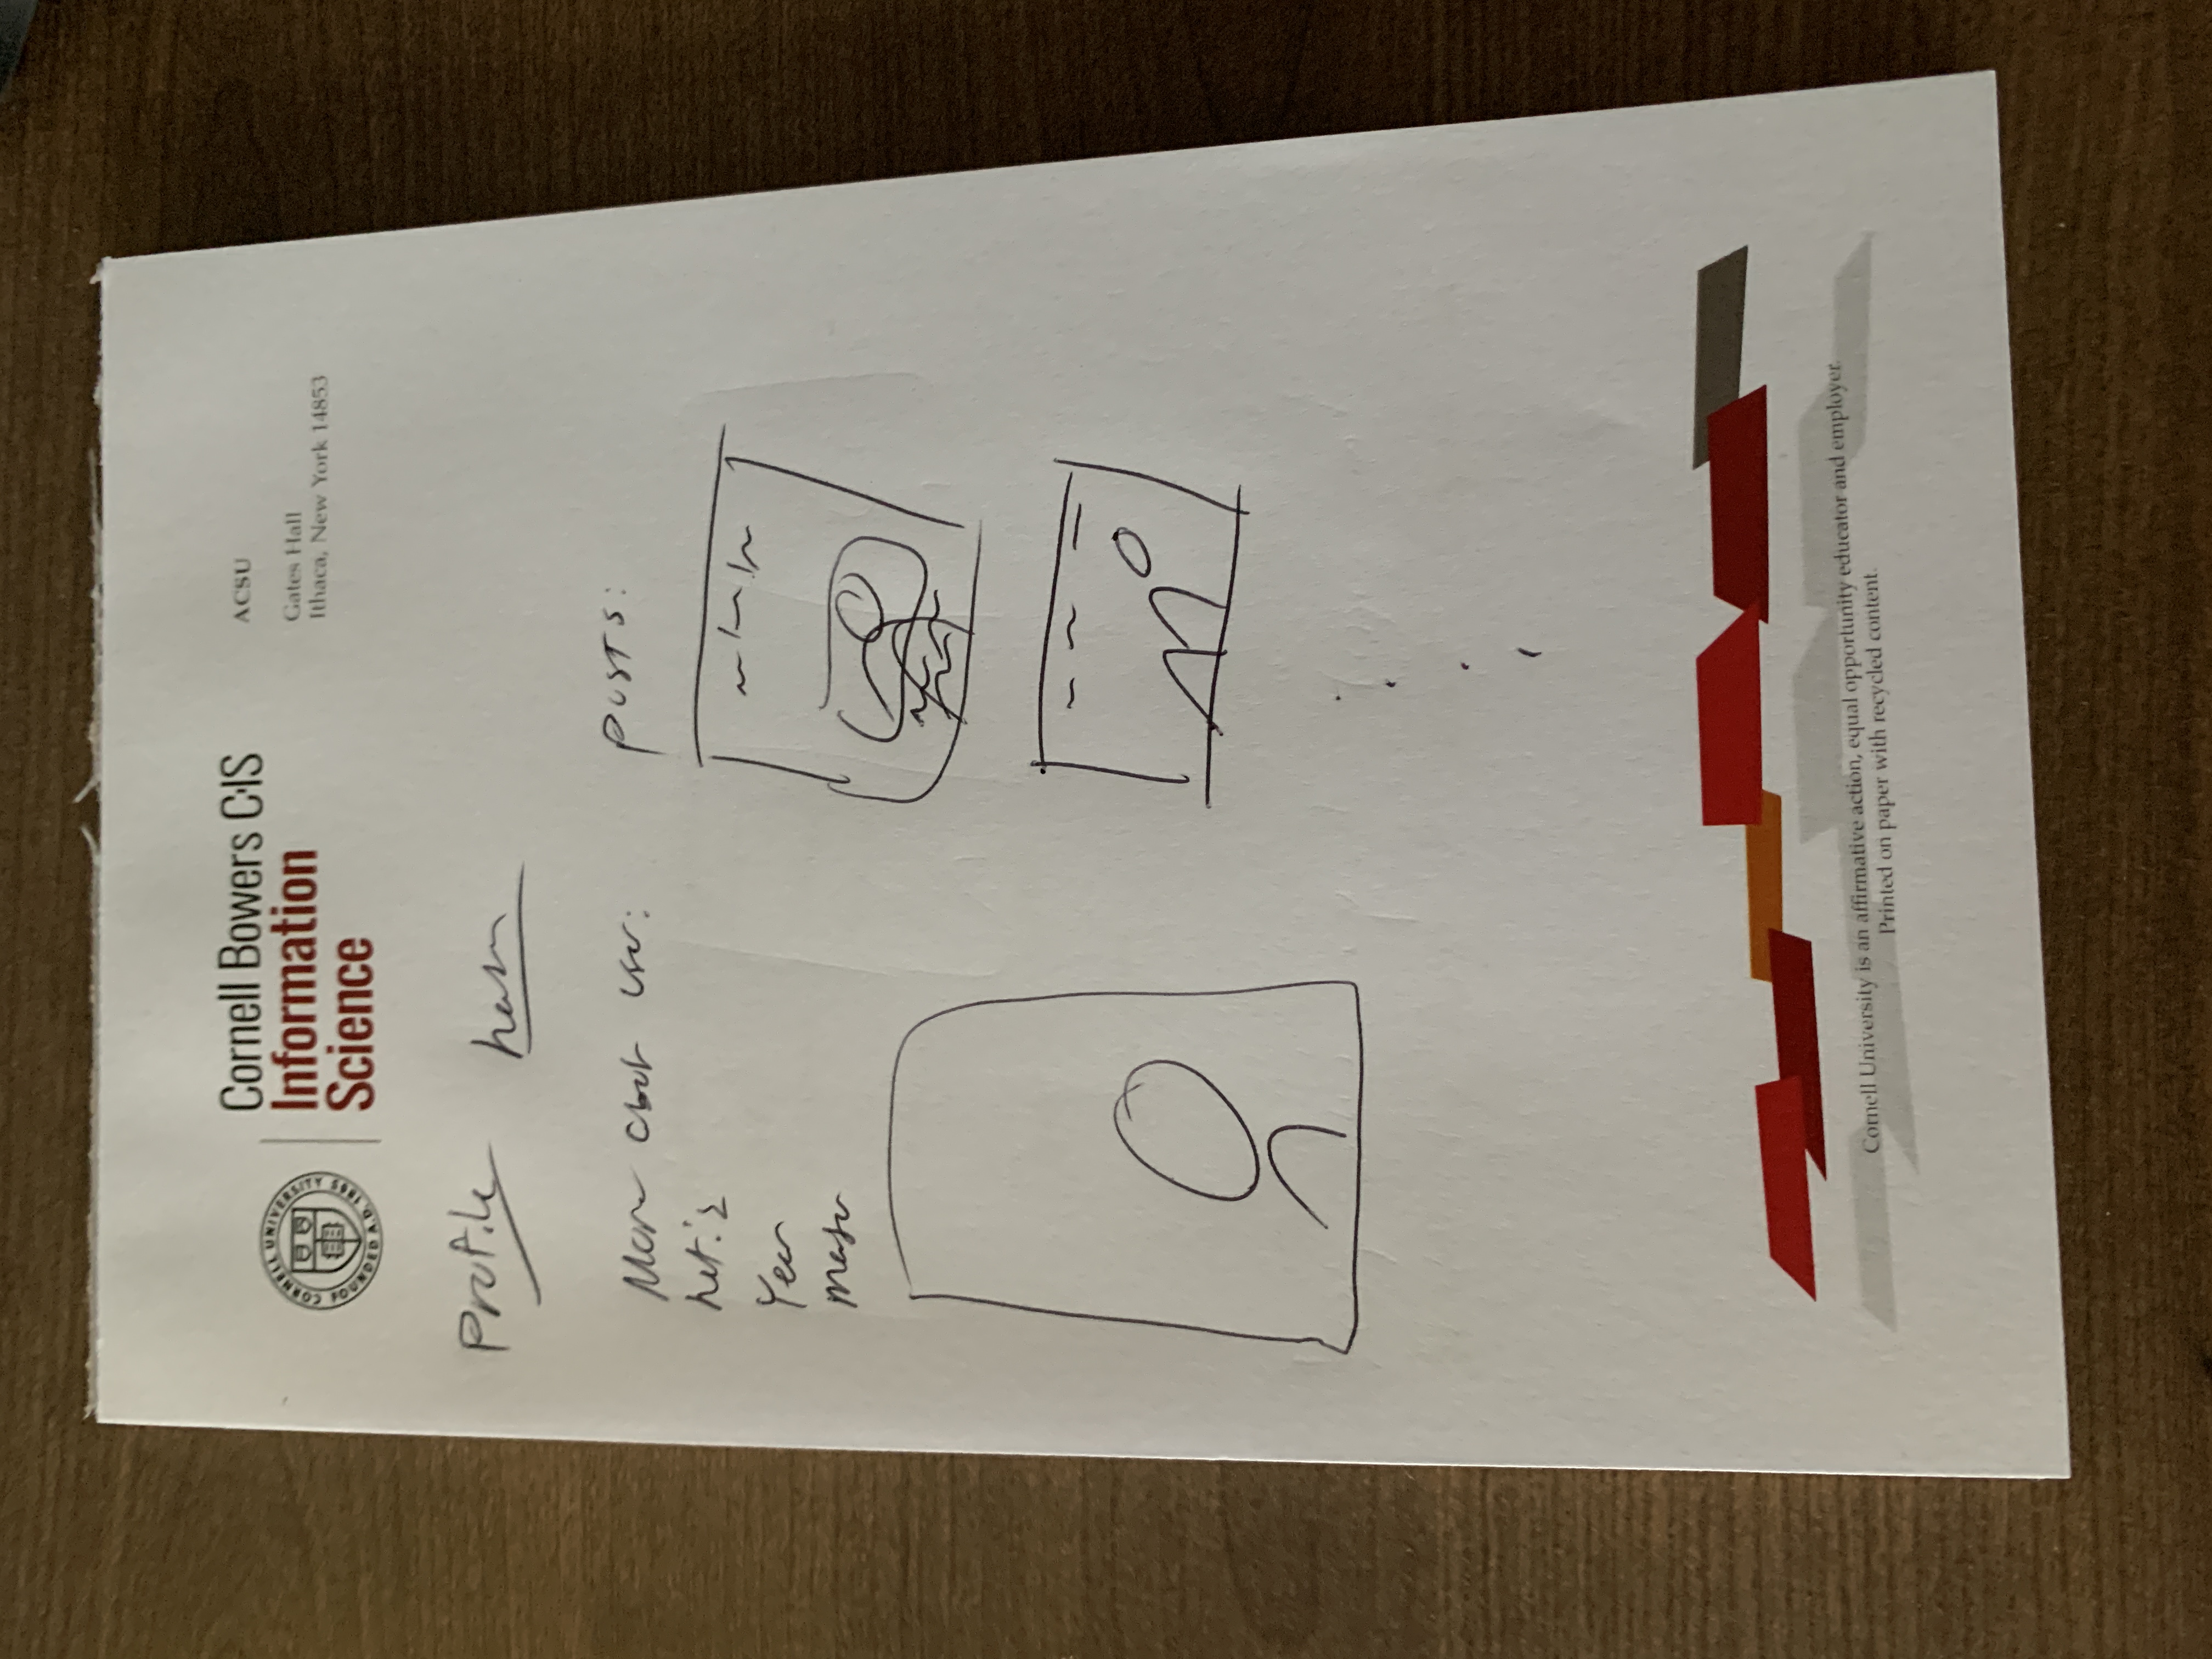 CORNELL UNIVERSITY
FOUNDED A.D. 1865
Cornell Bowers C·IS
Information
Science
ACSU
Gates Hall
Ithaca, New York 14853
Profile
More about user:
Year
Major
Posts:
Cornell University is an affirmative action, equal opportunity educator and employer.
Printed on paper with recycled content.